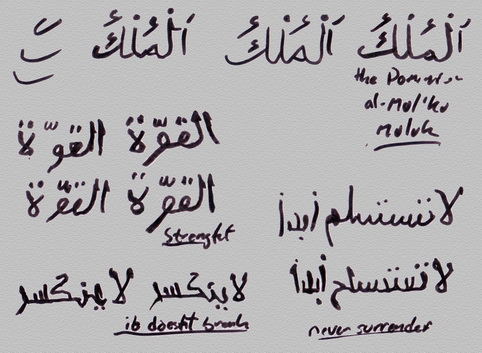 اَلْمُلْكُ اَلْمُلْكُ اَلْمُلْكُ
the Dominion
al-Mul'ku
Muluk
القوّة القوّة
القوّة القوّة
Strength
لا تستسلم أبداً
لا تستسلم أبداً
never surrender
لا ينكسر لا ينكسر
it doesn't break